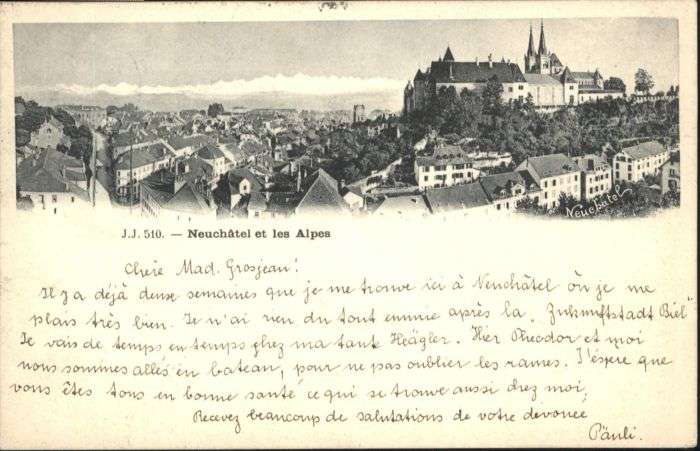 Neuchâtel
J.J. 510. — Neuchâtel et les Alpes
Chère Mad. Grosjean!
Il y a déjà deux semaines que je me trouve ici à Neuchâtel où je me
plais très bien. Je n'ai rien du tout ennuie après la Zukunftstadt Biel
Je vais de temps en temps chez ma tante Häägler. Hier Theodor et moi
nous sommes allés en bateau, pour ne pas oublier les rames. J'éspère que
vous êtes tous en bonne santé ce qui se trouve aussi chez moi,
Recevez beaucoup de salutations de votre devouée
Päuli.